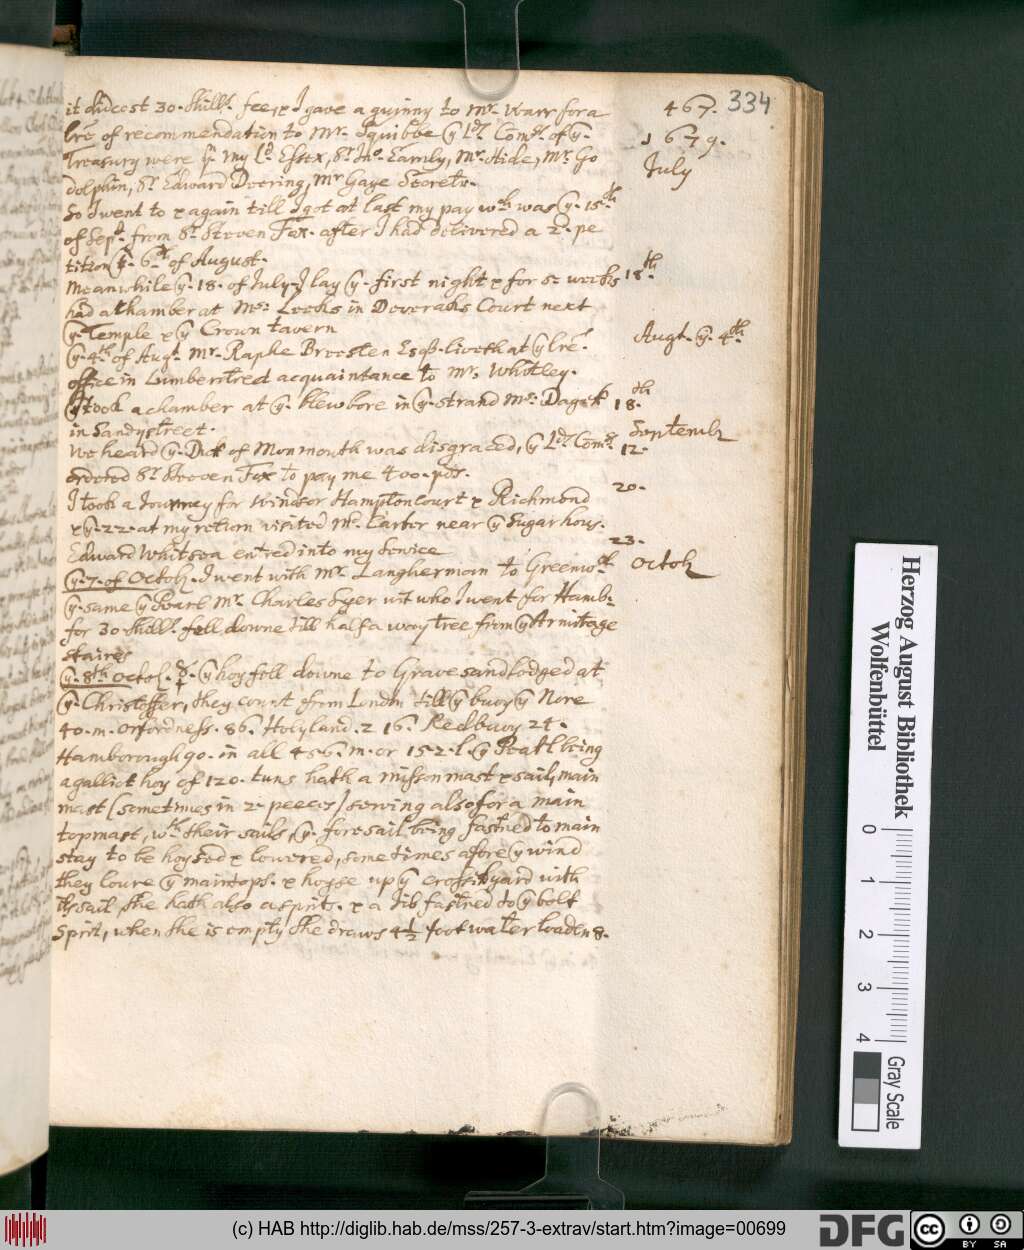 467. 334
1679.
July
it did cost 30. shill.s fees, x I gave a guinny to Mr. Warr for a
lre of recommendation to Mr. Squibbe ye Lds Comrs. of ye.
Treasury were yn. my Ld. Essex, Sr. Jno. Earnly, Mr. Hide, Mr. Go
dolphin, Sr. Edward Deering, Mr Gaye Secretr.
So I went to x again till I got at last my pay wch was ye. 15th.
of Sept. from Sr. Steven Fox. after I had delivered a 2d. pe
tition ye. 6th of August.
Meanwhile ye. 18. of July I lay ye. first night x for 6. weeks
18th.
had a chamber at Mrs. Leeks in Deverahs Court next
ye. Temple x ye Crown tavern
ye. 4th of Augt. Mr. Raphe Broesten Esqr. liveth at ye lre.
Augt. ye. 4th.
office in Lumberstreet acquaintance to Mr. Whitley.
I took a chamber at ye. blew bore in ye. strand Mr. Dagek
18.th
in Sandystreet.
Septembr
We heard ye. Duck of Monmouth was disgraced, ye Lds Comrs.
12.
ordered Sr. Steeven Fox to pay me 400. pds.
I took a Journey for Windsor Hampton Court x Richmond
20.
x ye. 22. at my return visited Mr. Carter near ye Sugar hous.
Edward Whitsea entred into my Service
23.
ye. 7. of Octob. I went with Mr. Langherman to Greenwch.
Octob
ye. same ye Pearl Mr. Charles Syer wt who I went for Hamb.
for 30. shill.s fell downe till halfa way tree from ye Armitage
staires
ye. 8th Octob. ye hoy fell downe to Gravesand lodged at
ye. Christoffer, they count from London till ye buoy ye Nore
40. m. Orfordness. 86. Holyland. 216. Redbuoy 24.
Hamborough 90. in all 456. m. or 152. l. ye Pearl being
a galliot hoy of 120. tuns hath a misson mast x sail, main
mast [sometimes in 2. peeces] serving also for a main
topmast, wth their sails, ye. foresail being fastned to main
stay to be hoysed x lowered, sometimes afore ye wind
they loure ye maintops. x hoyse up ye crossityard with
its sail, she hath also a sprit. x a Jib fastned to ye bolt
Sprit, when she is empty she draws 4½ foot water loaden 8.
Herzog August Bibliothek
Wolfenbüttel
0 1 2 3 4
Gray Scale
(c) HAB http://diglib.hab.de/mss/257-3-extrav/start.htm?image=00699
DFG
cc BY SA